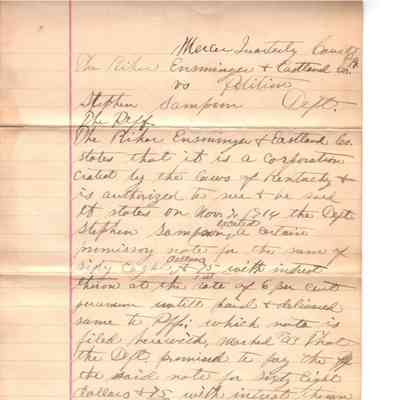 Mercer Quarterly Court
The Riker Ensminger & Eastland Co.
vs Petition
Stephen Sampson Deft.
The Plff
The Riker Ensminger & Eastland Co.
states that it is a corporation
created by the laws of Kentucky &
is authorized to sue & be sued
It states on Nov. 1914 the Deft
Stephen Sampson executed a certain
promissory note for the sum of
sixty eight dollars & 75 with interest
theron at the rate of 6 per cent
per annum until paid & delivered
same to Plff; which note is
filed herewith, marked A. That
the Deft promised to pay the Plff
the said note for sixty eight
dollars & 75 with interest theron